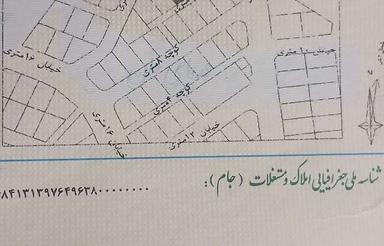 کوچه ۸ متری
خیابان ۱۰ متری
خیابان ۱۶ متری
کوچه ۴ متری
خیابان ۱۶ متری
خیابان ۱۲ متری
شناسه ملی جغرافیایی املاک و مستغلات (جام):
۸۴۱۳۱۳۹۷۶۴۹۶۳۸۰۰۰۰۰۰۰۰